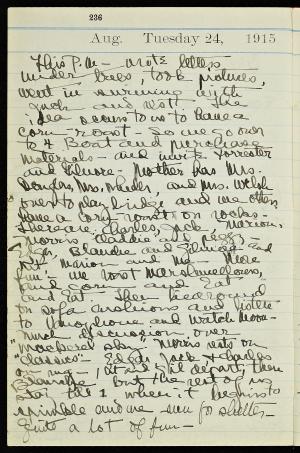 236
Aug. Tuesday 24, 1915
This P.M - write letters
under trees, took pictures,
went in swimming with
Jack and West. The
idea occurs to us to have a
corn-roast - so we go down
to + Boat and purchase
materials - and invite Forrester
and Gilmore. Mother has Mrs.
Douglas, Mrs. and Mrs. Welsh
over to play bridge and we others
have a corn-roast on rocks -
There are Charles, Jack, Marion,
Morris, Claddie and Peggy,
Edgar, Blanche and
Marion and me - More
fun - we roast marshmellows,
and corn and eat
and eat. Then lie around
on sofa cushions and listen
to and watch moon -
much discussion over
"mackerel sky" Morris rests on
on rug - at and Gil depart, then
Blanche but the rest of us
stay till 1 when it begins to
sprinkle and we run for shelter -
Quite a lot of fun -